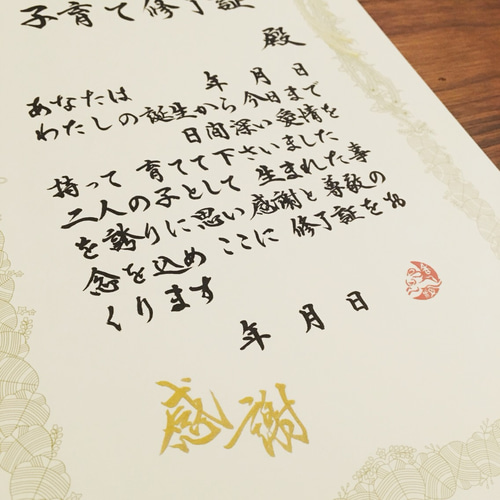 子育て修了証
殿
あなたは 年 月 日
わたしの誕生から今日まで
日間深い愛情を
持って 育てて下さいました
二人の子として 生まれた事
を誇りに思い 感謝と尊敬の
念を込め ここに 修了証をお
くります
年 月 日
感謝